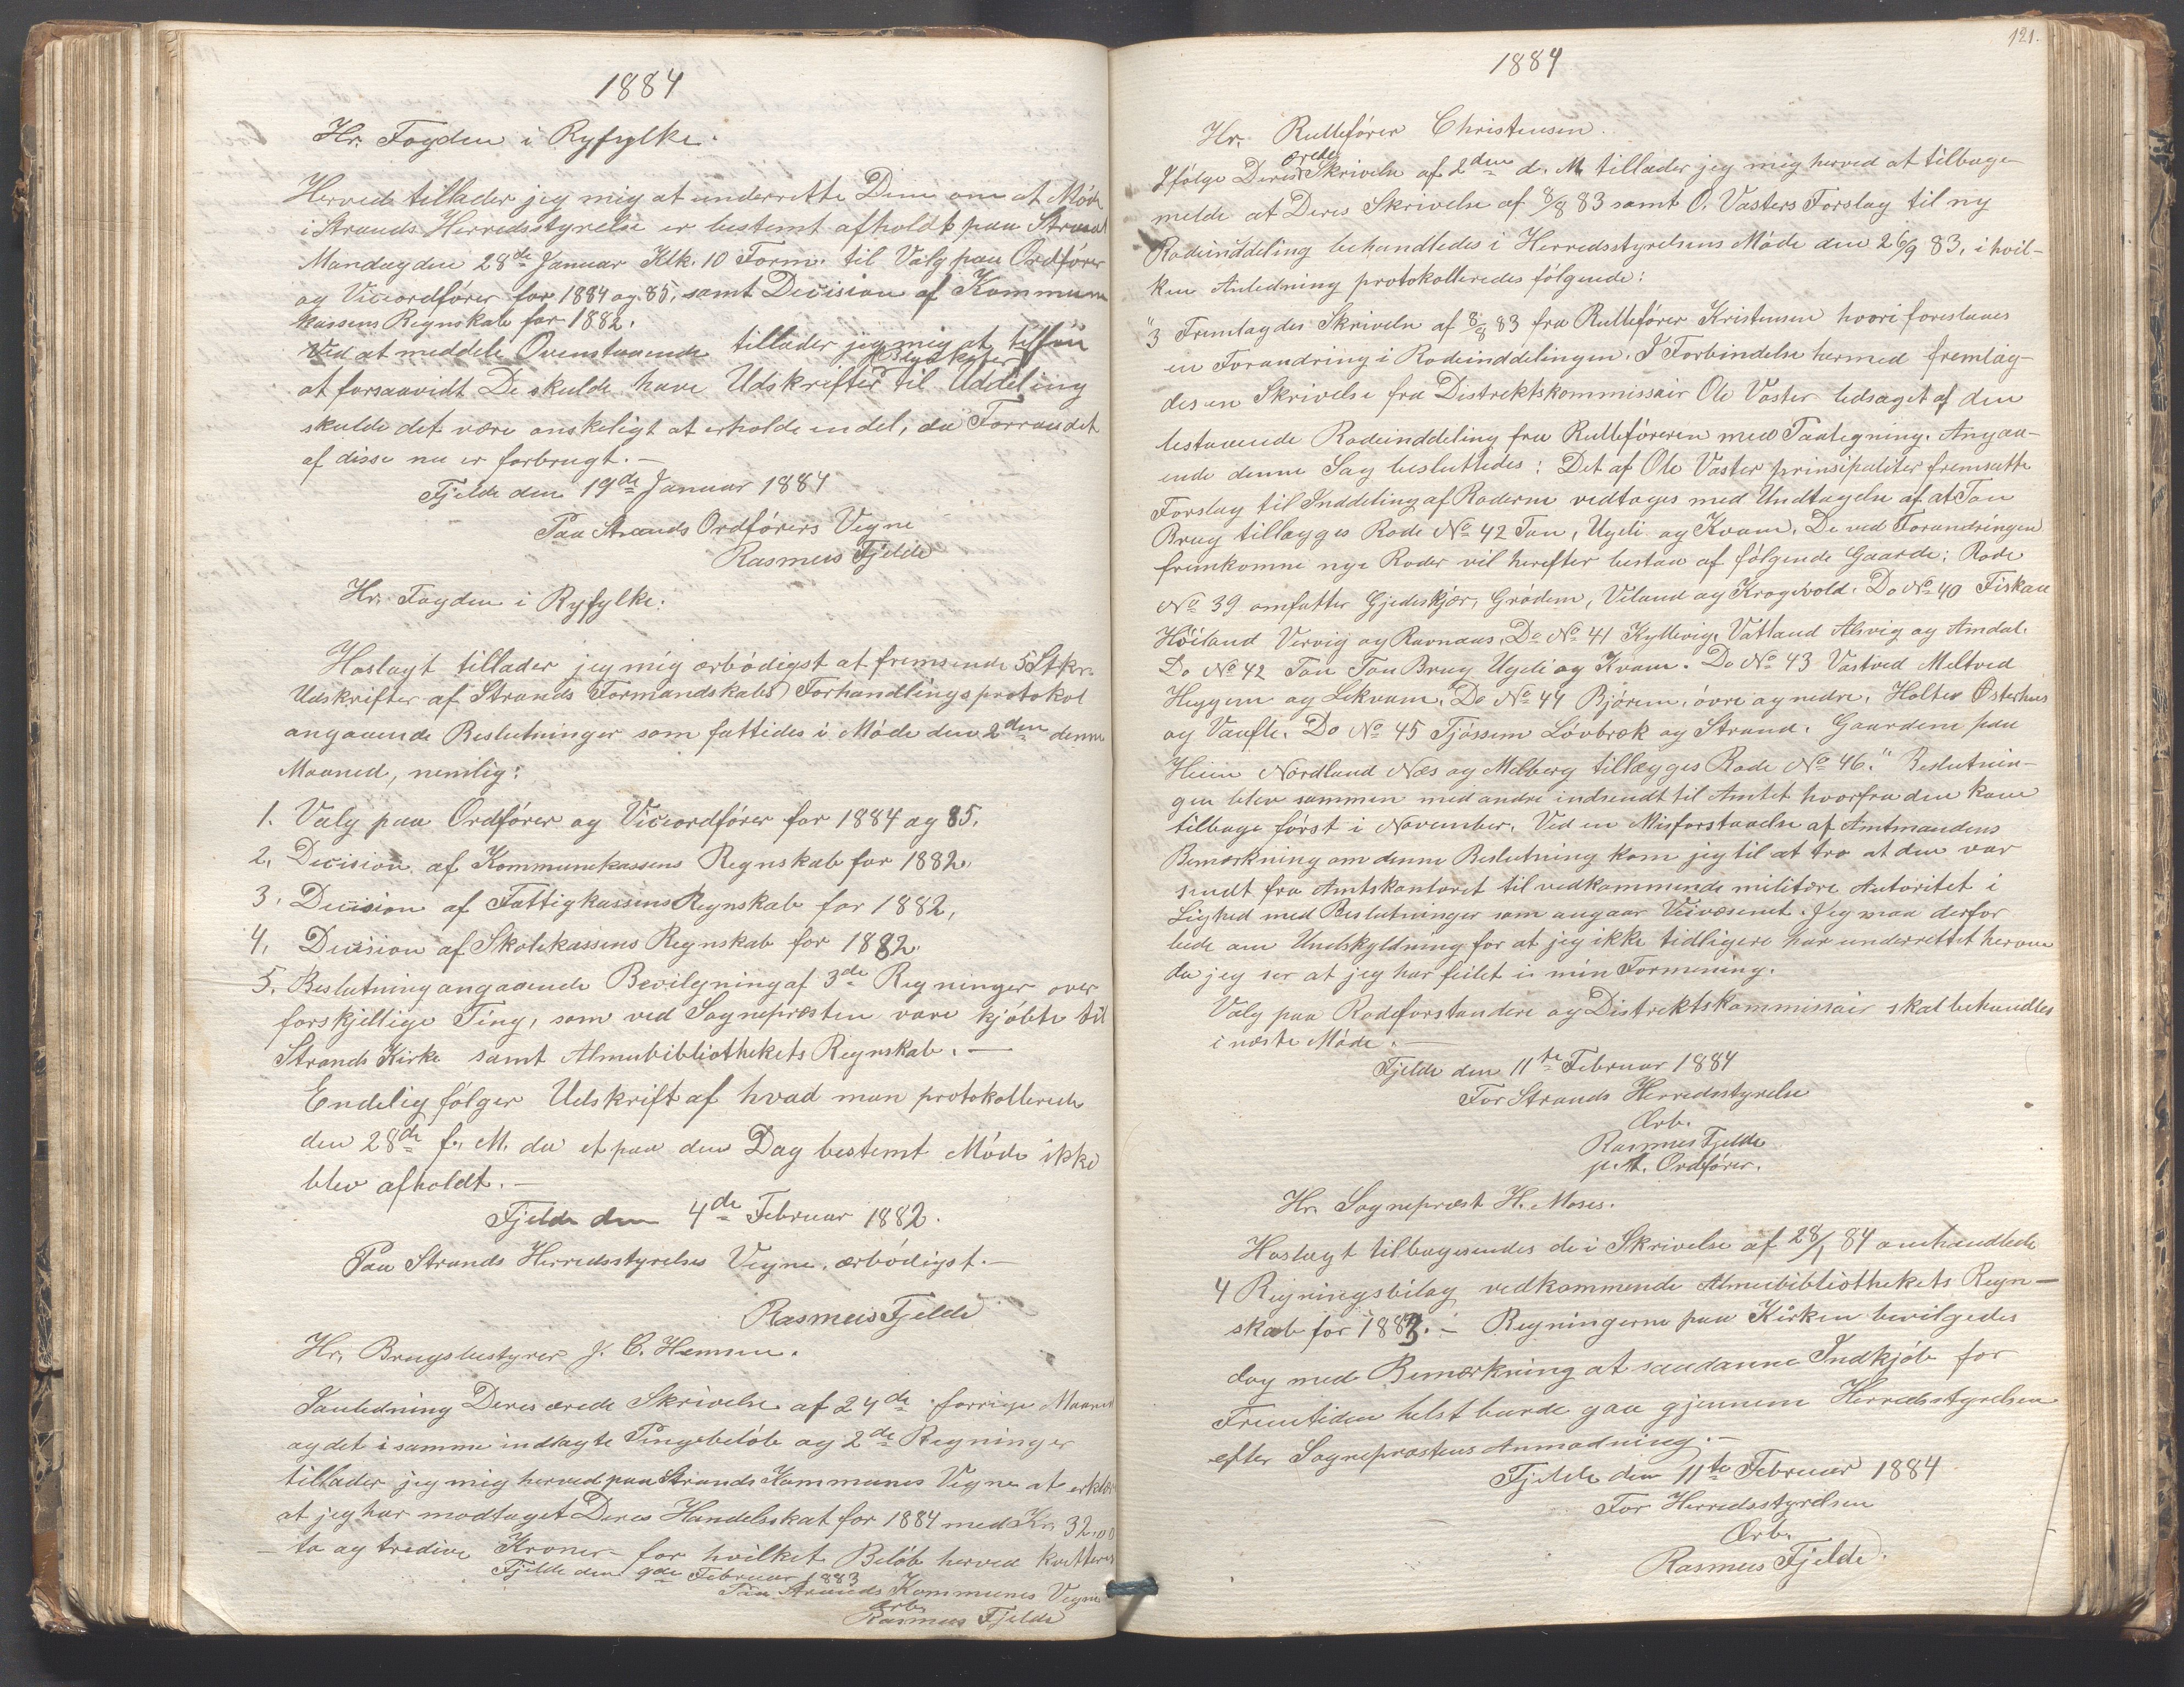 1884
Hr. Fogden i Ryfylke.
Herved tillader jeg mig at underrette Dem om at Møde
i Strands Herredsstyrelse er bestemt afholdt paa Strand
Mandag den 28de Januar Klk. 10 Form. til Valg paa Ordfører
og Viceordfører for 1884 og 85, samt Decision af Kommune
kassens Regnskab for 1882.
Ved at meddele Ovenstaaende tillader jeg mig at tilføie
at forsaavidt De skulde have Udskrifter til Uddeling
skulde det være ønskeligt at erholde en del, da Forraadet
af disse nu er forbrugt. —
Fjelde den 19de Januar 1884
Paa Strands Ordførers Vegne
Rasmus Fjelde
Hr. Fogden i Ryfylke:
Hoslagt tillader jeg mig ærbødigst at fremsende 5 Stkr.
Udskrifter af Strands Formandskabs Forhandlingsprotokol
angaaende Beslutninger som fattedes i Møde den 2den denne
Maaned, nemlig:
1. Valg paa Ordfører og Viceordfører for 1884 og 85.
2. Decision af Kommunekassens Regnskab for 1882
3. Decision af Fattigkassens Regnskab for 1882,
4. Decision af Skolekassens Regnskab for 1882.
5. Beslutning angaaende Bevilgning af 3de Regninger over
forskjellige Ting, som ved Sognepræsten vare kjøbte til
Strands Kirke samt Almubibliothekets Regnskab. —
Endelig følger Udskrift af hvad man protokollerede
den 28de f. M. da et paa den Dag bestemt Møde ikke
blev afholdt. —
Fjelde den 4de Februar 1882.
Paa Strands Herredsstyrelses Vegne, ærbødigst. —
Rasmus Fjelde
Hr. Brugsbestyrer J. C. Hansen.
I anledning Deres ærede Skrivelse af 24de forrige Maaned
og det i samme indlagte Pengebeløb og 2de Regninger
tillader jeg mig herved paa Strands Kommunes Vegne at erklære
at jeg har modtaget Deres Handelsskat for 1884 med Kr. 32,00
— to og tredive Kroner — for hvilket Beløb herved kvitteres
Fjelde den 9de Februar 1883
Paa Strands Kommunes Vegne
Ærb.
Rasmus Fjelde
121.
1884
Hr. Rullefører Christensen.
Ifølge Deres ærede Skrivelse af 2den d. M. tillader jeg mig herved at tilbage-
melde at Deres Skrivelse af 8/8 83 samt O. Vasters Forslag til ny
Rodeinddeling behandledes i Herredsstyrelsens Møde den 26/9 83, i hvil-
ken Anledning protokolleredes følgende:
"3 Fremlagdes Skrivelse af 8/8 83 fra Rullefører Kristensen hvori foreslaaes
en Forandring i Rodeinddelingen. I Forbindelse hermed fremlag-
des en Skrivelse fra Distriktskommissair Ole Vaster ledsaget af den
bestaaende Rodeinddeling fra Rulleføreren med Paategning. Angaa-
ende denne Sag besluttedes: Det af Ole Vaster prinsipaliter fremsatte
Forslag til Inddeling af Roderne vedtoges med Undtagelse af at Tau
Brug tillægges Rode No 42 Tau, Ugeli og Kvam. De ved Forandringen
fremkomne nye Roder vil herefter bestaa af følgende Gaarde: Rode
No 39 omfatter Gjedeskjær, Grødem, Veland og Krogevold. Do No 40 Fiskaa
Høiland Vervig og Ravnaas. Do No 41 Kyllevig, Vatland Alsvig og Amdal.
Do No 42 Tau Tau Brug Ugeli og Kvam. Do No 43 Vastved Meltved
Heggem og Lekvam. Do No 44 Bjørem, øvre og nedre, Holter Østerhus
og Vaufle. Do No 45 Tjøssem Løvbræk og Strand. Gaardene paa
Heien Nordland Næs og Melberg tillægges Rode No 46." Beslutnin-
gen blev sammen med andre indsendt til Amtet hvorfra den kom
tilbage først i November. Ved en Misforstaaelse af Amtmandens
Bemærkning om denne Beslutning kom jeg til at tro at den var
sendt fra Amtskontoret til vedkommende militære Autoritet i
Lighed med Beslutninger som angaar Veivæsenet. Jeg maa derfor
bede om Undskyldning for at jeg ikke tidligere har underrettet herom
da jeg ser at jeg har feilet i min Formening.
Valg paa Rodeforstandere og Distriktskommissair skal behandles
i næste Møde. —
Fjelde den 11te Februar 1884
For Strands Herredsstyrelse
Ærb.
Rasmus Fjelde
p. t. Ordfører.
Hr. Sognepræst H. Moses.
Hoslagt tilbagesendes de i Skrivelse af 28/1 84 omhandlede
4 Regningsbilag vedkommende Almubibliothekets Regn-
skab for 1883. — Regningerne paa Kirken bevilgedes
dog med Bemærkning at saadanne Indkjøb for
Fremtiden helst burde gaa gjennem Herredsstyrelsen
efter Sognepræstens Anmodning. —
Fjelde den 11te Februar 1884
For Herredsstyrelsen
Ærb.
Rasmus Fjelde.